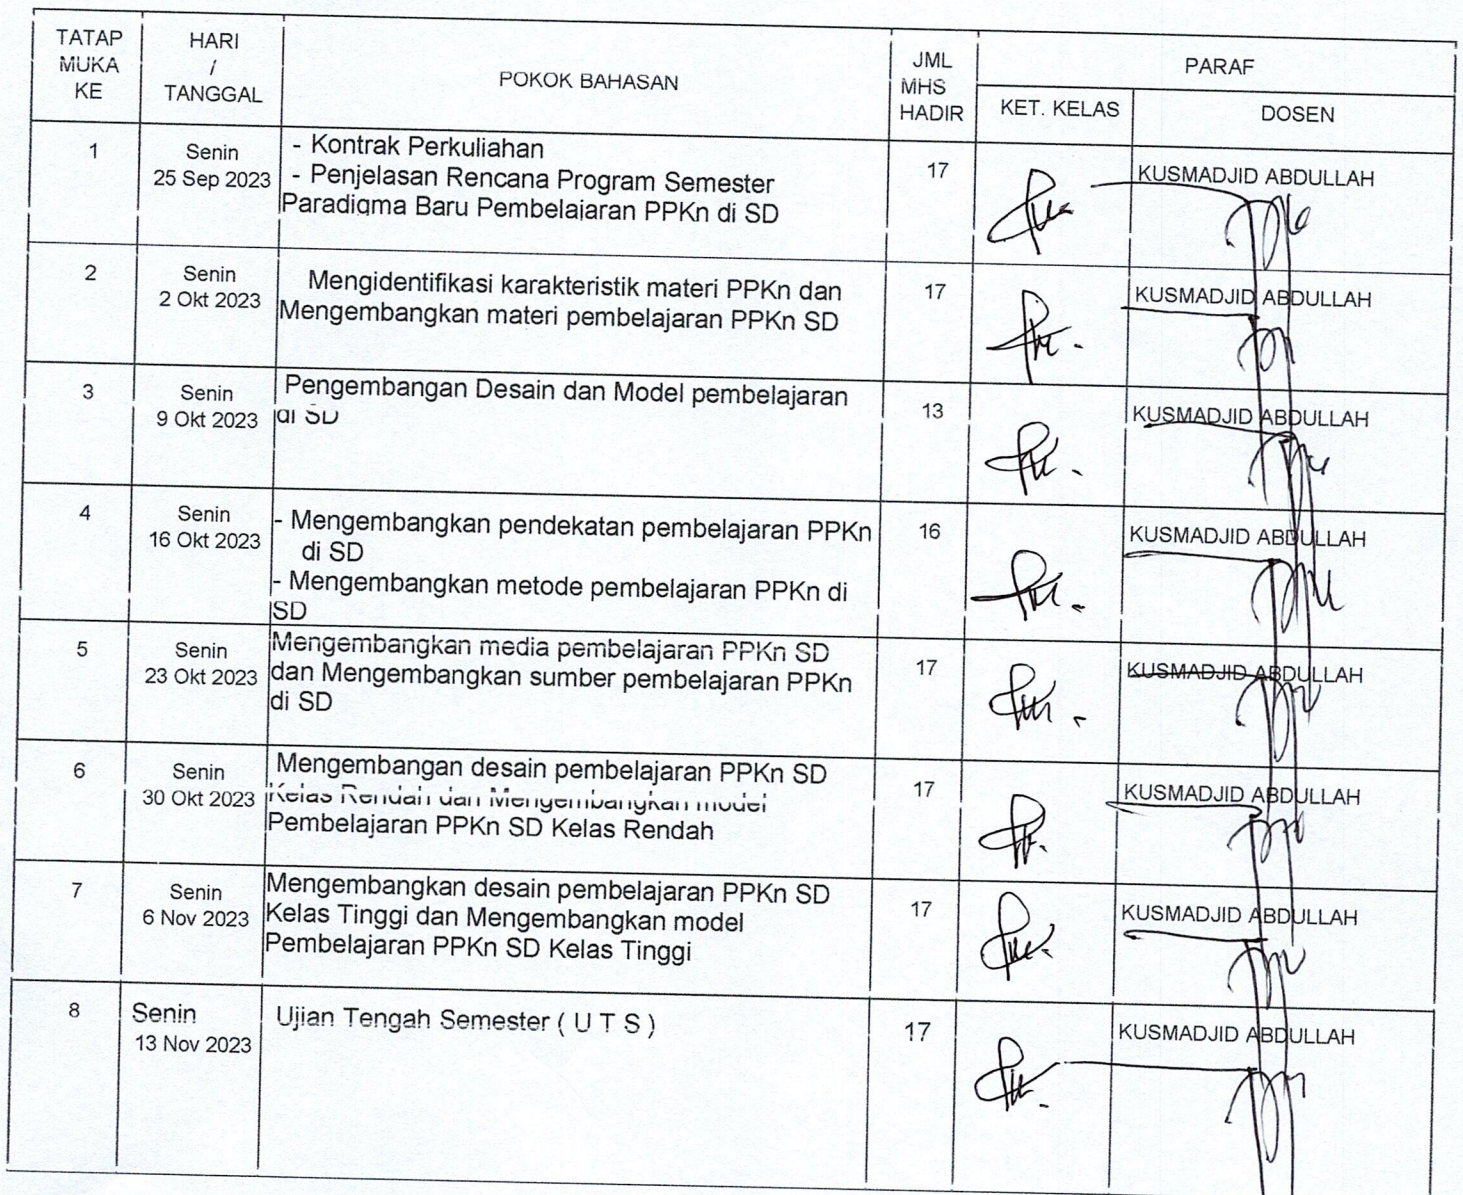 TATAP
MUKA
KE
HARI
/
TANGGAL
POKOK BAHASAN
JML
MHS
HADIR
PARAF
KET. KELAS
DOSEN
1
Senin
25 Sep 2023
- Kontrak Perkuliahan
- Penjelasan Rencana Program Semester
Paradigma Baru Pembelajaran PPKn di SD
17
KUSMADJID ABDULLAH
2
Senin
2 Okt 2023
Mengidentifikasi karakteristik materi PPKn dan
Mengembangkan materi pembelajaran PPKn SD
17
KUSMADJID ABDULLAH
3
Senin
9 Okt 2023
Pengembangan Desain dan Model pembelajaran
di SD
13
KUSMADJID ABDULLAH
4
Senin
16 Okt 2023
- Mengembangkan pendekatan pembelajaran PPKn
di SD
- Mengembangkan metode pembelajaran PPKn di
SD
16
KUSMADJID ABDULLAH
5
Senin
23 Okt 2023
Mengembangkan media pembelajaran PPKn SD
dan Mengembangkan sumber pembelajaran PPKn
di SD
17
KUSMADJID ABDULLAH
6
Senin
30 Okt 2023
Mengembangan desain pembelajaran PPKn SD
Kelas Rendah dan Mengembangkan model
Pembelajaran PPKn SD Kelas Rendah
17
KUSMADJID ABDULLAH
7
Senin
6 Nov 2023
Mengembangkan desain pembelajaran PPKn SD
Kelas Tinggi dan Mengembangkan model
Pembelajaran PPKn SD Kelas Tinggi
17
KUSMADJID ABDULLAH
8
Senin
13 Nov 2023
Ujian Tengah Semester ( U T S )
17
KUSMADJID ABDULLAH